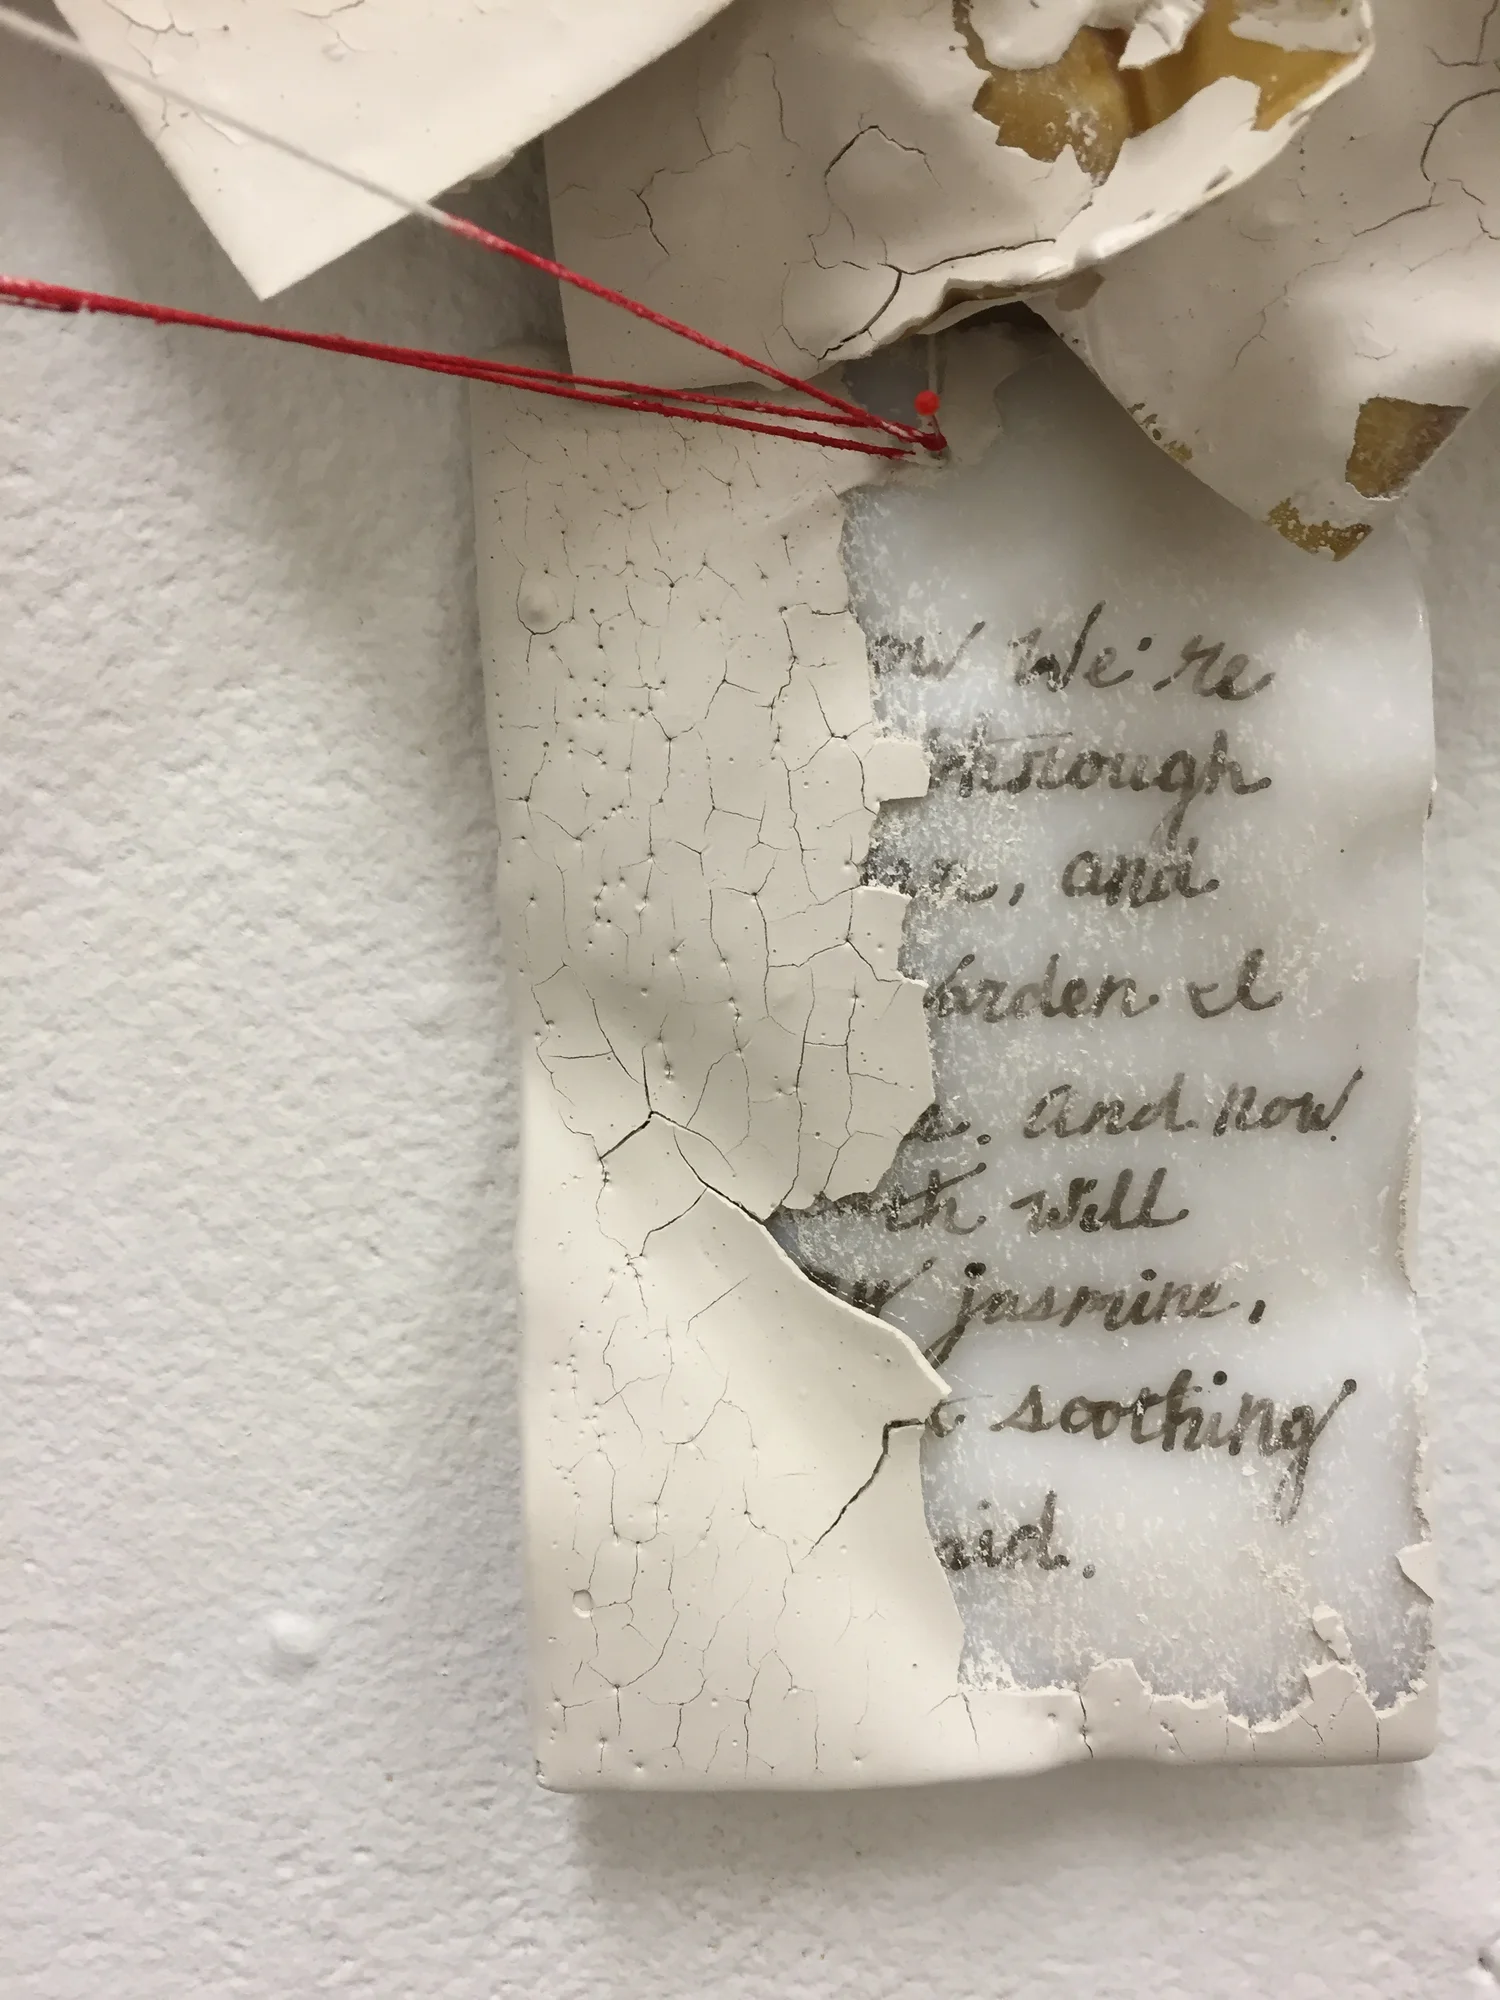 ow We're
through
n, and
arden I
e. And now
th will
w jasmine,
soothing
aid.